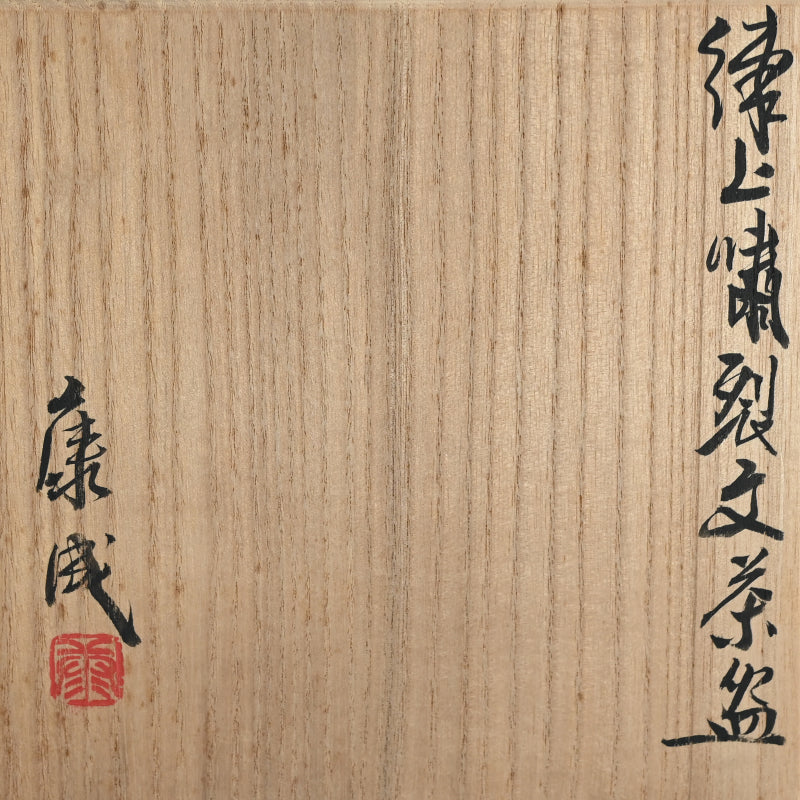 練上嘯裂文茶盌
康成